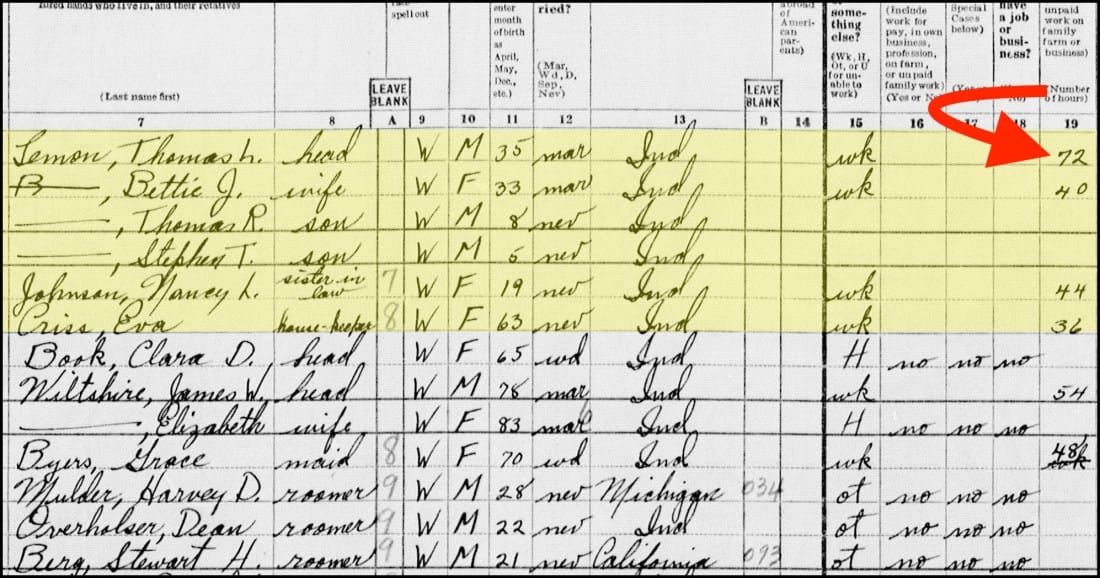 hired hands who live in, and their relatives
(Last name first)
7
8
spell out
LEAVE BLANK
A
9
10
enter month of birth as April, May, Dec., etc.)
11
ried?
(Mar, Wd, D, Sep, Nev)
12
13
LEAVE BLANK
B
abroad of Ameri- can par- ents)
14
some- thing else?
(Wk, H, Ot, or U for un- able to work)
15
(Include work for pay, in own business, profession, on farm, or unpaid family work)
16
Special Cases below)
17
have a job or busi- ness?
18
unpaid work on family farm or business)
(Number of hours)
19
Lemon, Thomas L. head W M 35 mar Ind wk 72
B——, Bettie J. wife W F 33 mar Ind wk 40
——, Thomas R. son W M 8 nev Ind
——, Stephen T. son W M 5 nev Ind
Johnson, Nancy L. sister in law 7 W F 19 nev Ind wk 44
Criss, Eva house-keeper 8 W F 63 nev Ind wk 36
Book, Clara D. head W F 65 wd Ind H no no no
Wiltshire, James W. head W M 78 mar Ind wk 54
——, Elizabeth wife W F 83 mar Ind H no no no
Byers, Grace maid 8 W F 70 wd Ind wk 48
Mulder, Harvey D. roomer 9 W M 28 nev Michigan 034 ot no no no
Overholser, Dean roomer 9 W M 22 nev Ind ot no no no
Berg, Stewart H. roomer 9 W M 21 nev California 093 ot no no no